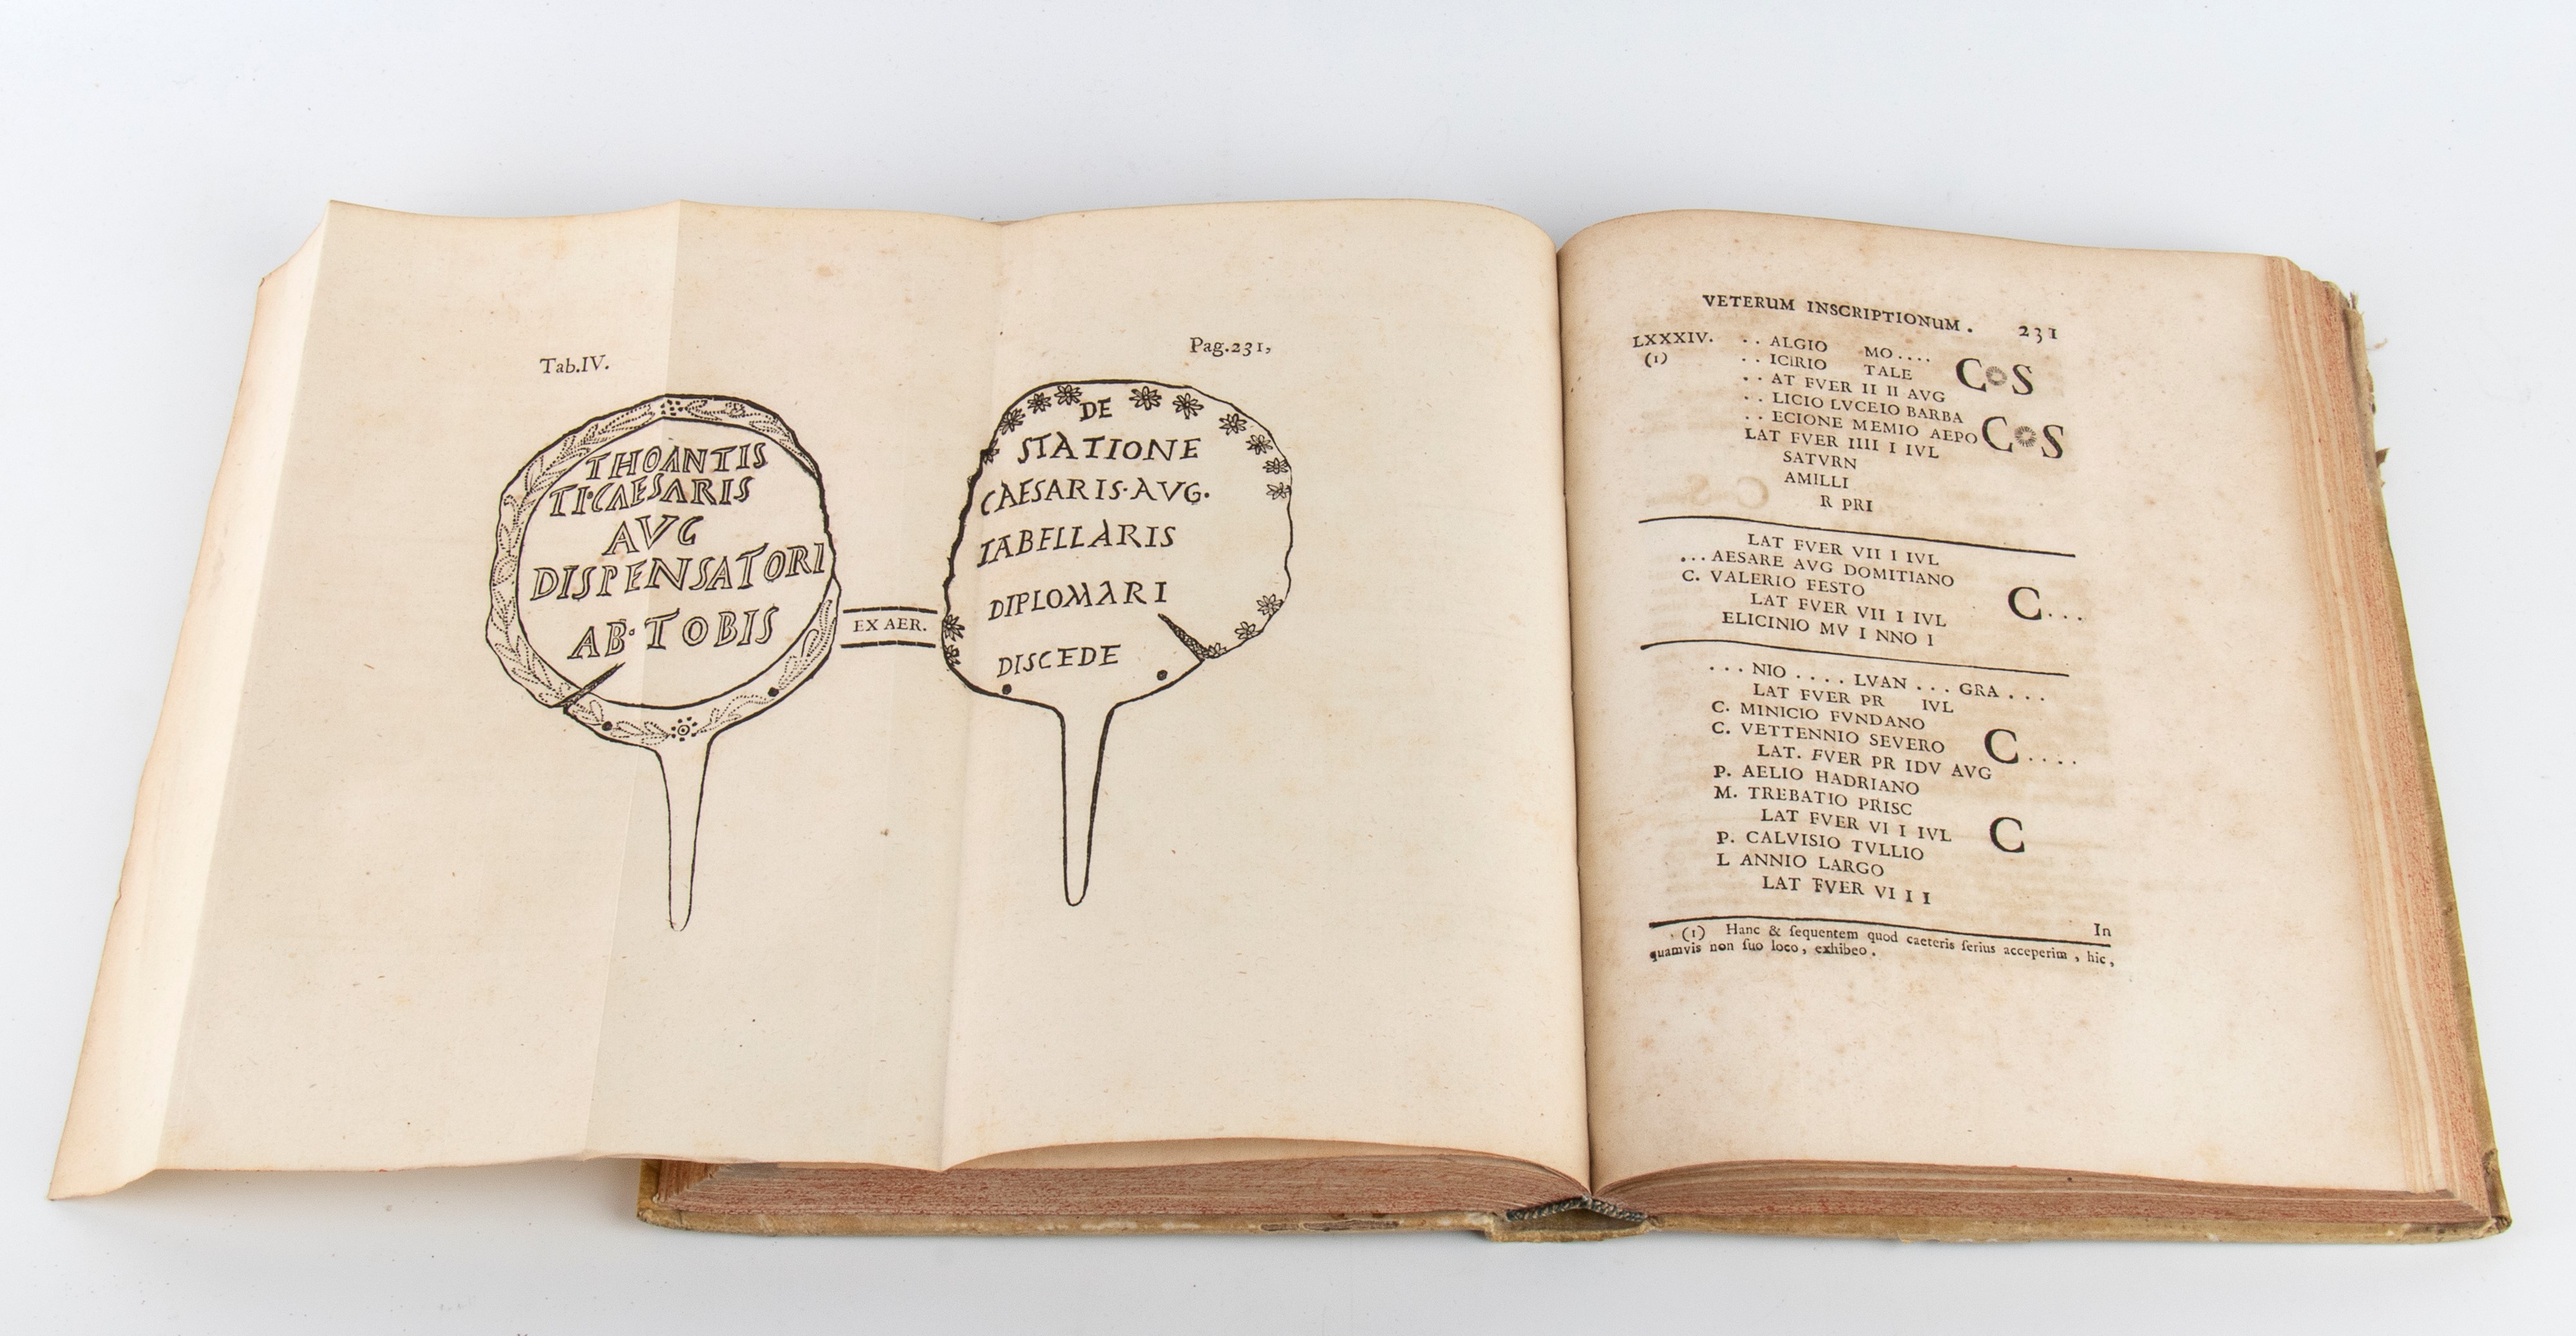 Tab.IV.
Pag.231,
THOANTIS
TI·CAESARIS
AVG
DISPENSATORI
AB·TOBIS
EX AER.
DE
STATIONE
CAESARIS·AVG.
TABELLARIS
DIPLOMARI
DISCEDE
VETERUM INSCRIPTIONUM. 231
LXXXIV. . . ALGIO MO . . . .
(1) . . ICIRIO TALE COS
. . AT FVER II II AVG
. . LICIO LVCEIO BARBA
. . ECIONE MEMIO AEPO COS
LAT FVER IIII I IVL
SATVRN
AMILLI
R PRI
LAT FVER VII I IVL
. . . AESARE AVG DOMITIANO
C. VALERIO FESTO C . . .
LAT FVER VII I IVL
ELICINIO MV I NNO I
. . . NIO . . . . LVAN . . . GRA . . .
LAT FVER PR IVL
C. MINICIO FVNDANO
C. VETTENNIO SEVERO C . . . .
LAT. FVER PR IDV AVG
P. AELIO HADRIANO
M. TREBATIO PRISC
LAT FVER VI I IVL C
P. CALVISIO TVLLIO
L ANNIO LARGO
LAT FVER VI I I
In
(1) Hanc & ſequentem quod caeteris ſerius acceperim, hic,
quamvis non ſuo loco, exhibeo.